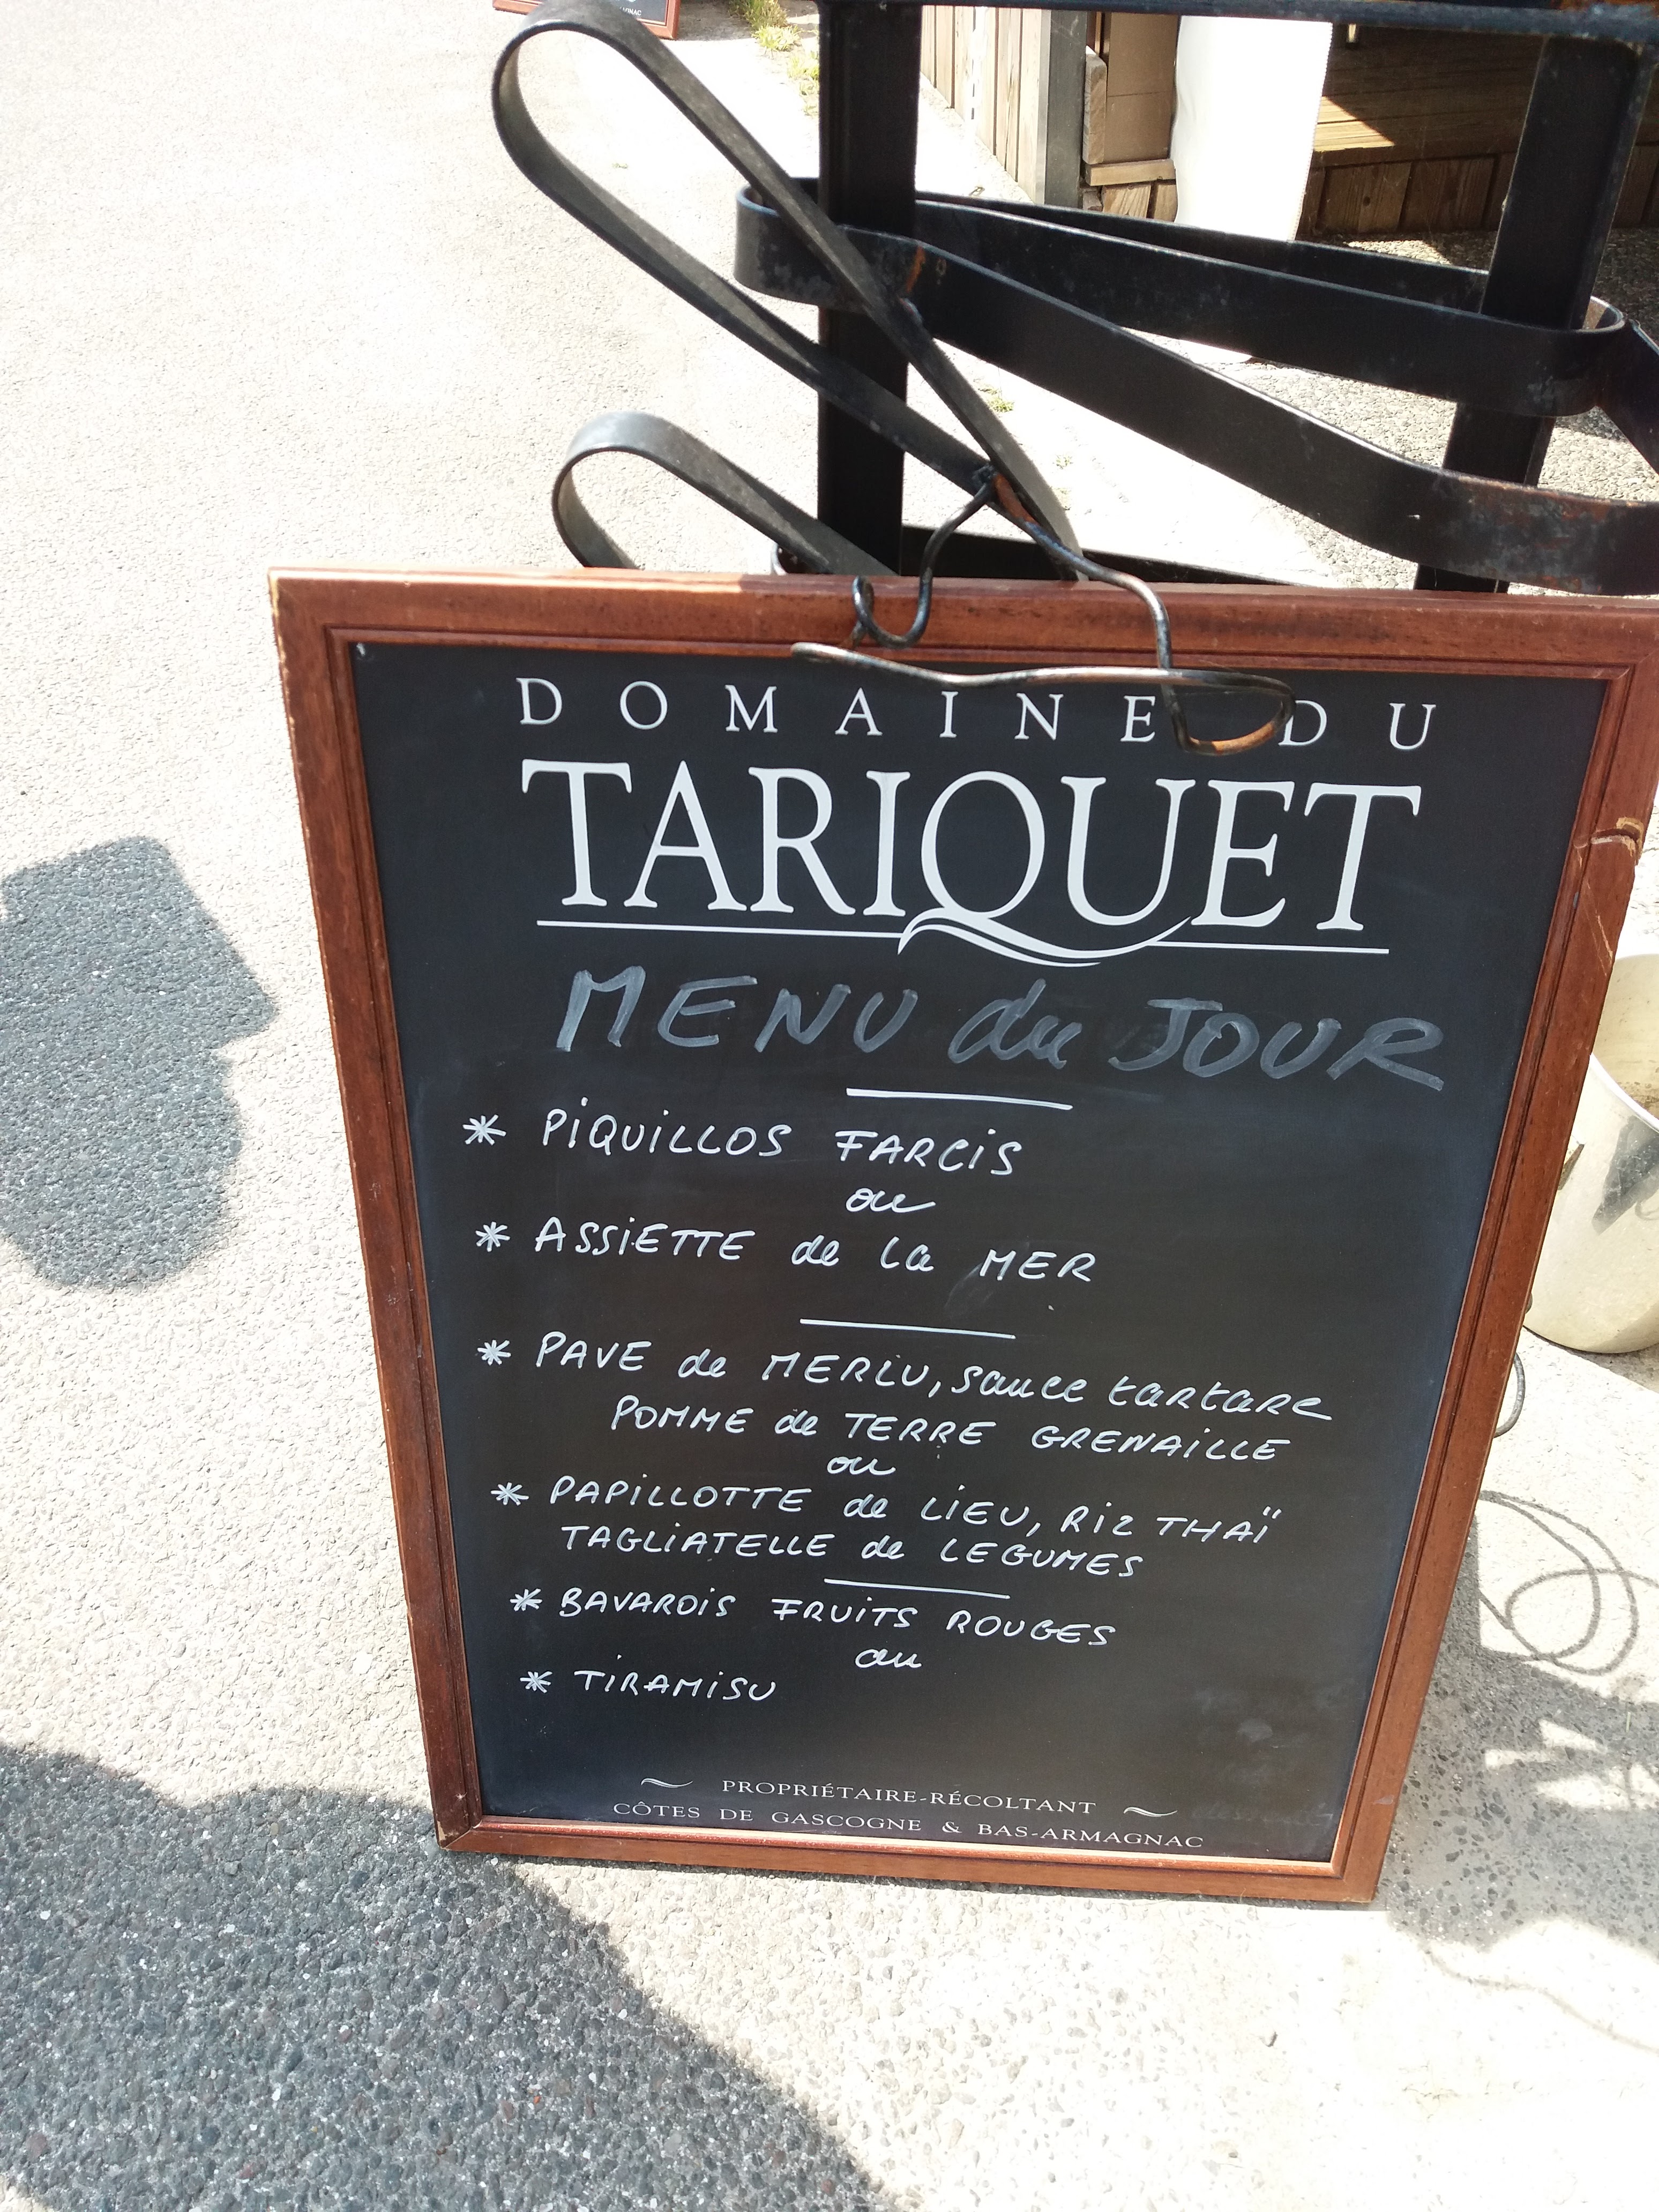 DOMAINE DU
TARIQUET
MENU du JOUR
* PiQUiLLOS FARCiS
ou
* ASSiETTE de la MER
* PAVE de MERLU, sauce tartare
POMME de TERRE GRENAILLE
ou
* PAPILLOTTE de LiEU, RiZ THAÏ
TAGLiATELLE de LEGUMES
* BAVAROiS FRUiTS ROUGES
ou
* TiRAMiSU
PROPRIÉTAIRE-RÉCOLTANT
CÔTES DE GASCOGNE & BAS-ARMAGNAC